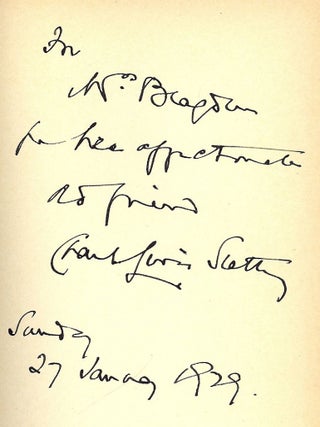 For
Mrs Bragdon
from her affectionate
old friend
Charles Lewis Slattery
Sunday
27 January 1929.